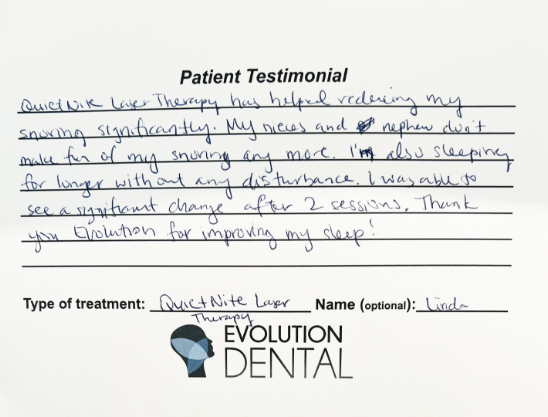 Patient Testimonial
QuietNite Laser Therapy has helped reducing my
snoring significantly. My nieces and nephew don't
make fun of my snoring any more. I'm also sleeping
for longer without any disturbance. I was able to
see a significant change after 2 sessions. Thank
you Evolution for improving my sleep!
Type of treatment: QuietNite Laser Name (optional): Linda
Therapy
EVOLUTION
DENTAL